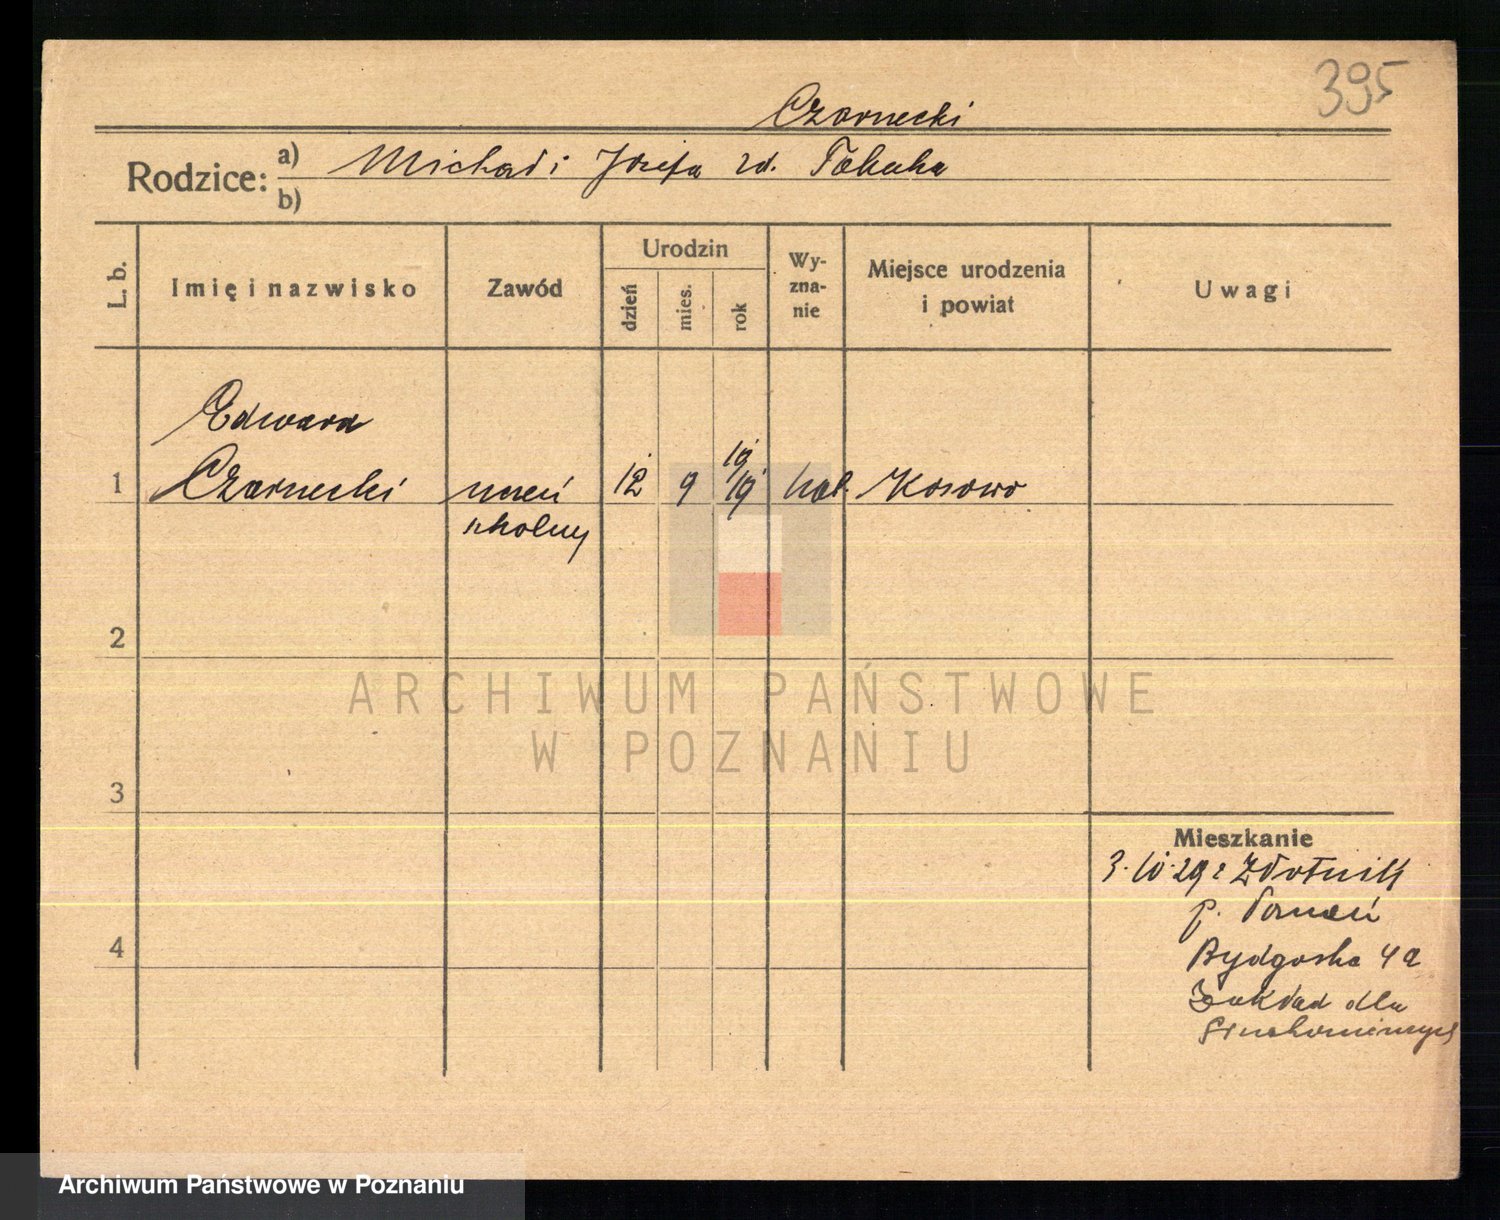 395
Czarnecki
Rodzice: a) Michał i Józefa zd.
b)
L. b.
Imię i nazwisko
Zawód
Urodzin
dzień
mies.
rok
Wy-
zna-
nie
Miejsce urodzenia
i powiat
Uwagi
Edward
1 Czarnecki uczeń 12 9 19/19 kat. Kosowo
szkolny
2
ARCHIWUM PAŃSTWOWE
W POZNANIU
3
Mieszkanie
3. 10. 29 z Złotnik
p. Poznań
4
Bydgoska 4a
Zakład dla
Głuchoniemych
Archiwum Państwowe w Poznaniu